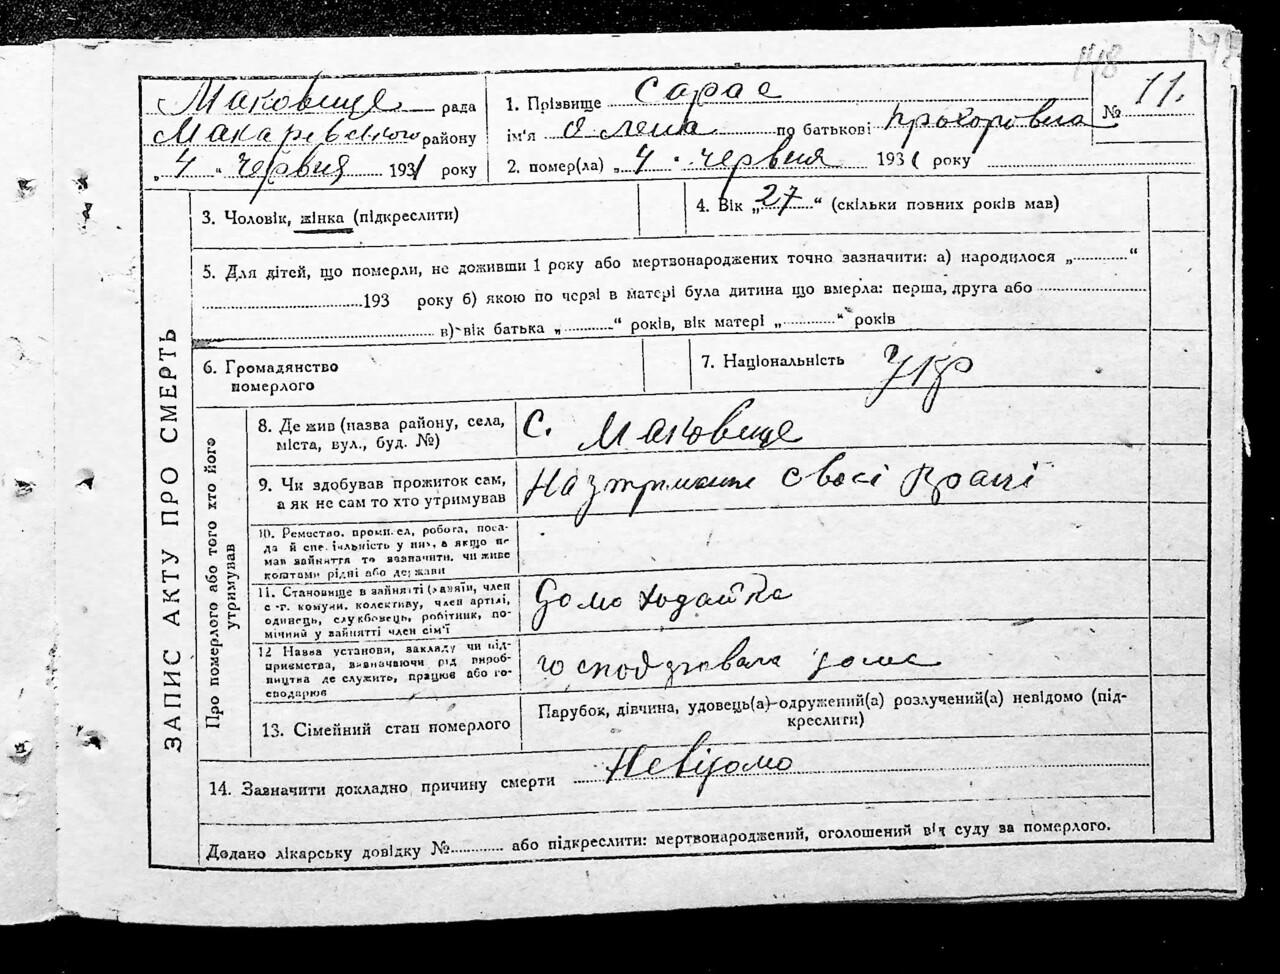 148
Маковище рада
Макарівського району
„ 4 “ червня 1931 року
1. Прізвище Сарас
ім'я Олена по батькові Прохоровна
2. помер(ла) „ 4 “ червня 1931 року
№ 11.
3. Чоловік, жінка (підкреслити)
4. Вік „ 27 “ (скільки повних років мав)
5. Для дітей, що померли, не доживши 1 року або мертвонароджених точно зазначити: а) народилося „ “
193 року б) якою по черзі в матері була дитина що вмерла: перша, друга або
в) вік батька „ “ років, вік матері „ “ років
6. Громадянство
померлого
7. Національність Укр
ЗАПИС АКТУ ПРО СМЕРТЬ
Про померлого або того хто його
утримував
8. Де жив (назва району, села,
міста, вул., буд. №)
с. Маковище
9. Чи здобував прожиток сам,
а як не сам то хто утримував
На своєї праці
10. Ремество, промисел, робота, поса-
да й спеціяльність у них, а якщо не
мав зайняття то зазначити, чи живе
коштами рідні або держави
11. Становище в зайнятті (хазяїн, член
с.-г. комуни, колективу, член артілі,
одинець, службовець, робітник, по-
мічний у зайнятті член сім'ї
домохазяйка
12 Назва установи, закладу чи під-
приємства, визначаючи рід вироб-
ництва де служить, працює або го-
сподарює
господарювала дома
13. Сімейний стан померлого
Парубок, дівчина, удовець(а) одружений(а) розлучений(а) невідомо (під-
креслити)
14. Зазначити докладно причину смерти Невідомо
Додано лікарську довідку № або підкреслити: мертвонароджений, оголошений від суду за померлого.